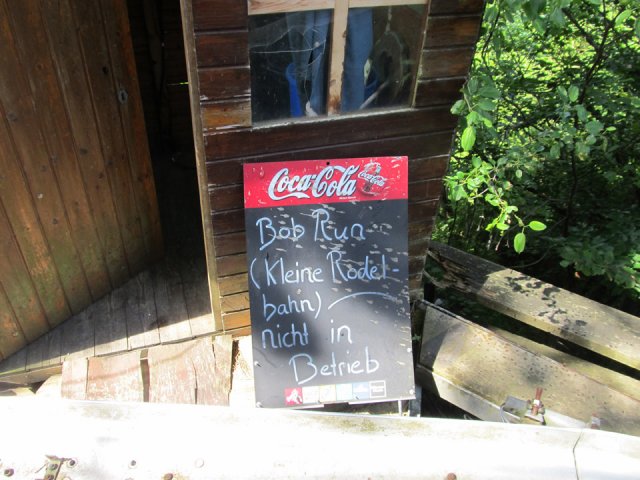 Coca-Cola Coca-Cola
Bob Run
(Kleine Rodel-
bahn)
nicht in
Betrieb